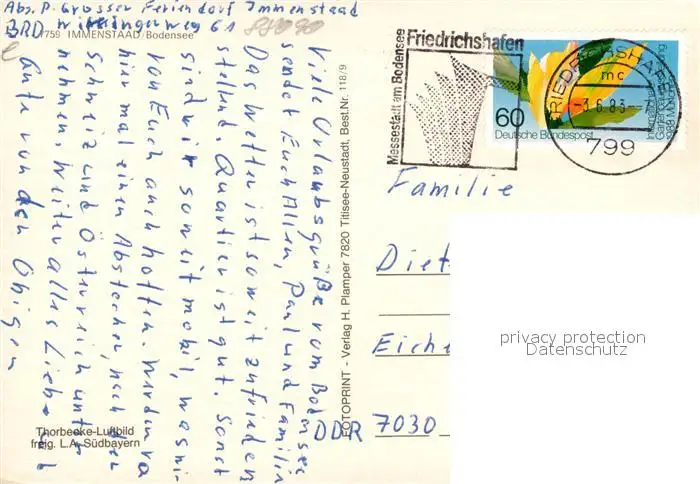 Abs. P. Grosser Feriendorf Immenstaad
BRD Wirrlingerweg 61
7759 IMMENSTAAD/Bodensee
Viele Urlaubsgrüße vom Bodensee
sendet Euch Allen, Paul und Familie
Das Wetter ist soweit zufrieden
stellend. Quartier ist gut. Sonst
sind wir soweit mobil, was wir
von Euch auch hoffen. Würden va
hier mal einen Abstecher, nach der
Schweiz und Österreich unter
nehmen. Weiter alles Liebe u.
Gute von den Obigen
Thorbecke-Luftbild
freig. L.A. Südbayern
FOTOPRINT - Verlag H. Plamper 7820 Titisee-Neustadt, Best.Nr. 118/9
Messestadt am Bodensee
Friedrichshafen
60
Deutsche Bundespost
FRIEDRICHSHAFEN
mc
-3.6.83-
799
Familie
Diet
Eiche
DDR 7030
privacy protection
Datenschutz